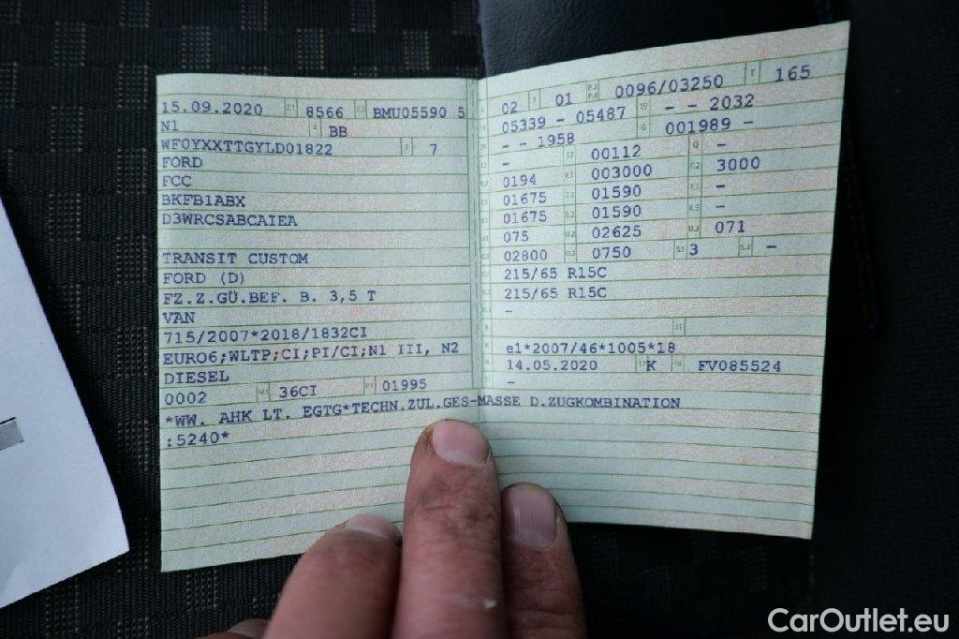 15.09.2020 2.1 8566 2.2 BMU05590 5
N1 4 BB
WF0YXXTTGYLD01822 3 7
FORD
FCC
BKFB1ABX
D3WRCSABCAIEA
TRANSIT CUSTOM
FORD (D)
FZ.Z.GÜ.BEF. B. 3,5 T
VAN
715/2007*2018/1832CI
EURO6;WLTP;CI;PI/CI;N1 III, N2
DIESEL
0002 36CI P.1 01995
*WW. AHK LT. EGTG*TECHN.ZUL.GES-MASSE D.ZUGKOMBINATION
:5240*
L 02 9 01 P.2 P.4 0096/03250 T 165
05339 - 05487 19 - - 2032
- - 1958 G 001989 -
- 13 00112 Q -
0194 003000 3000
01675 01590 -
01675 01590 -
075 02625 071
02800 0750 S.1 3 S.2 -
215/65 R15C
215/65 R15C
-
e1*2007/46*1005*18
14.05.2020 17 K 16 FV085524
-
CarOutlet.eu